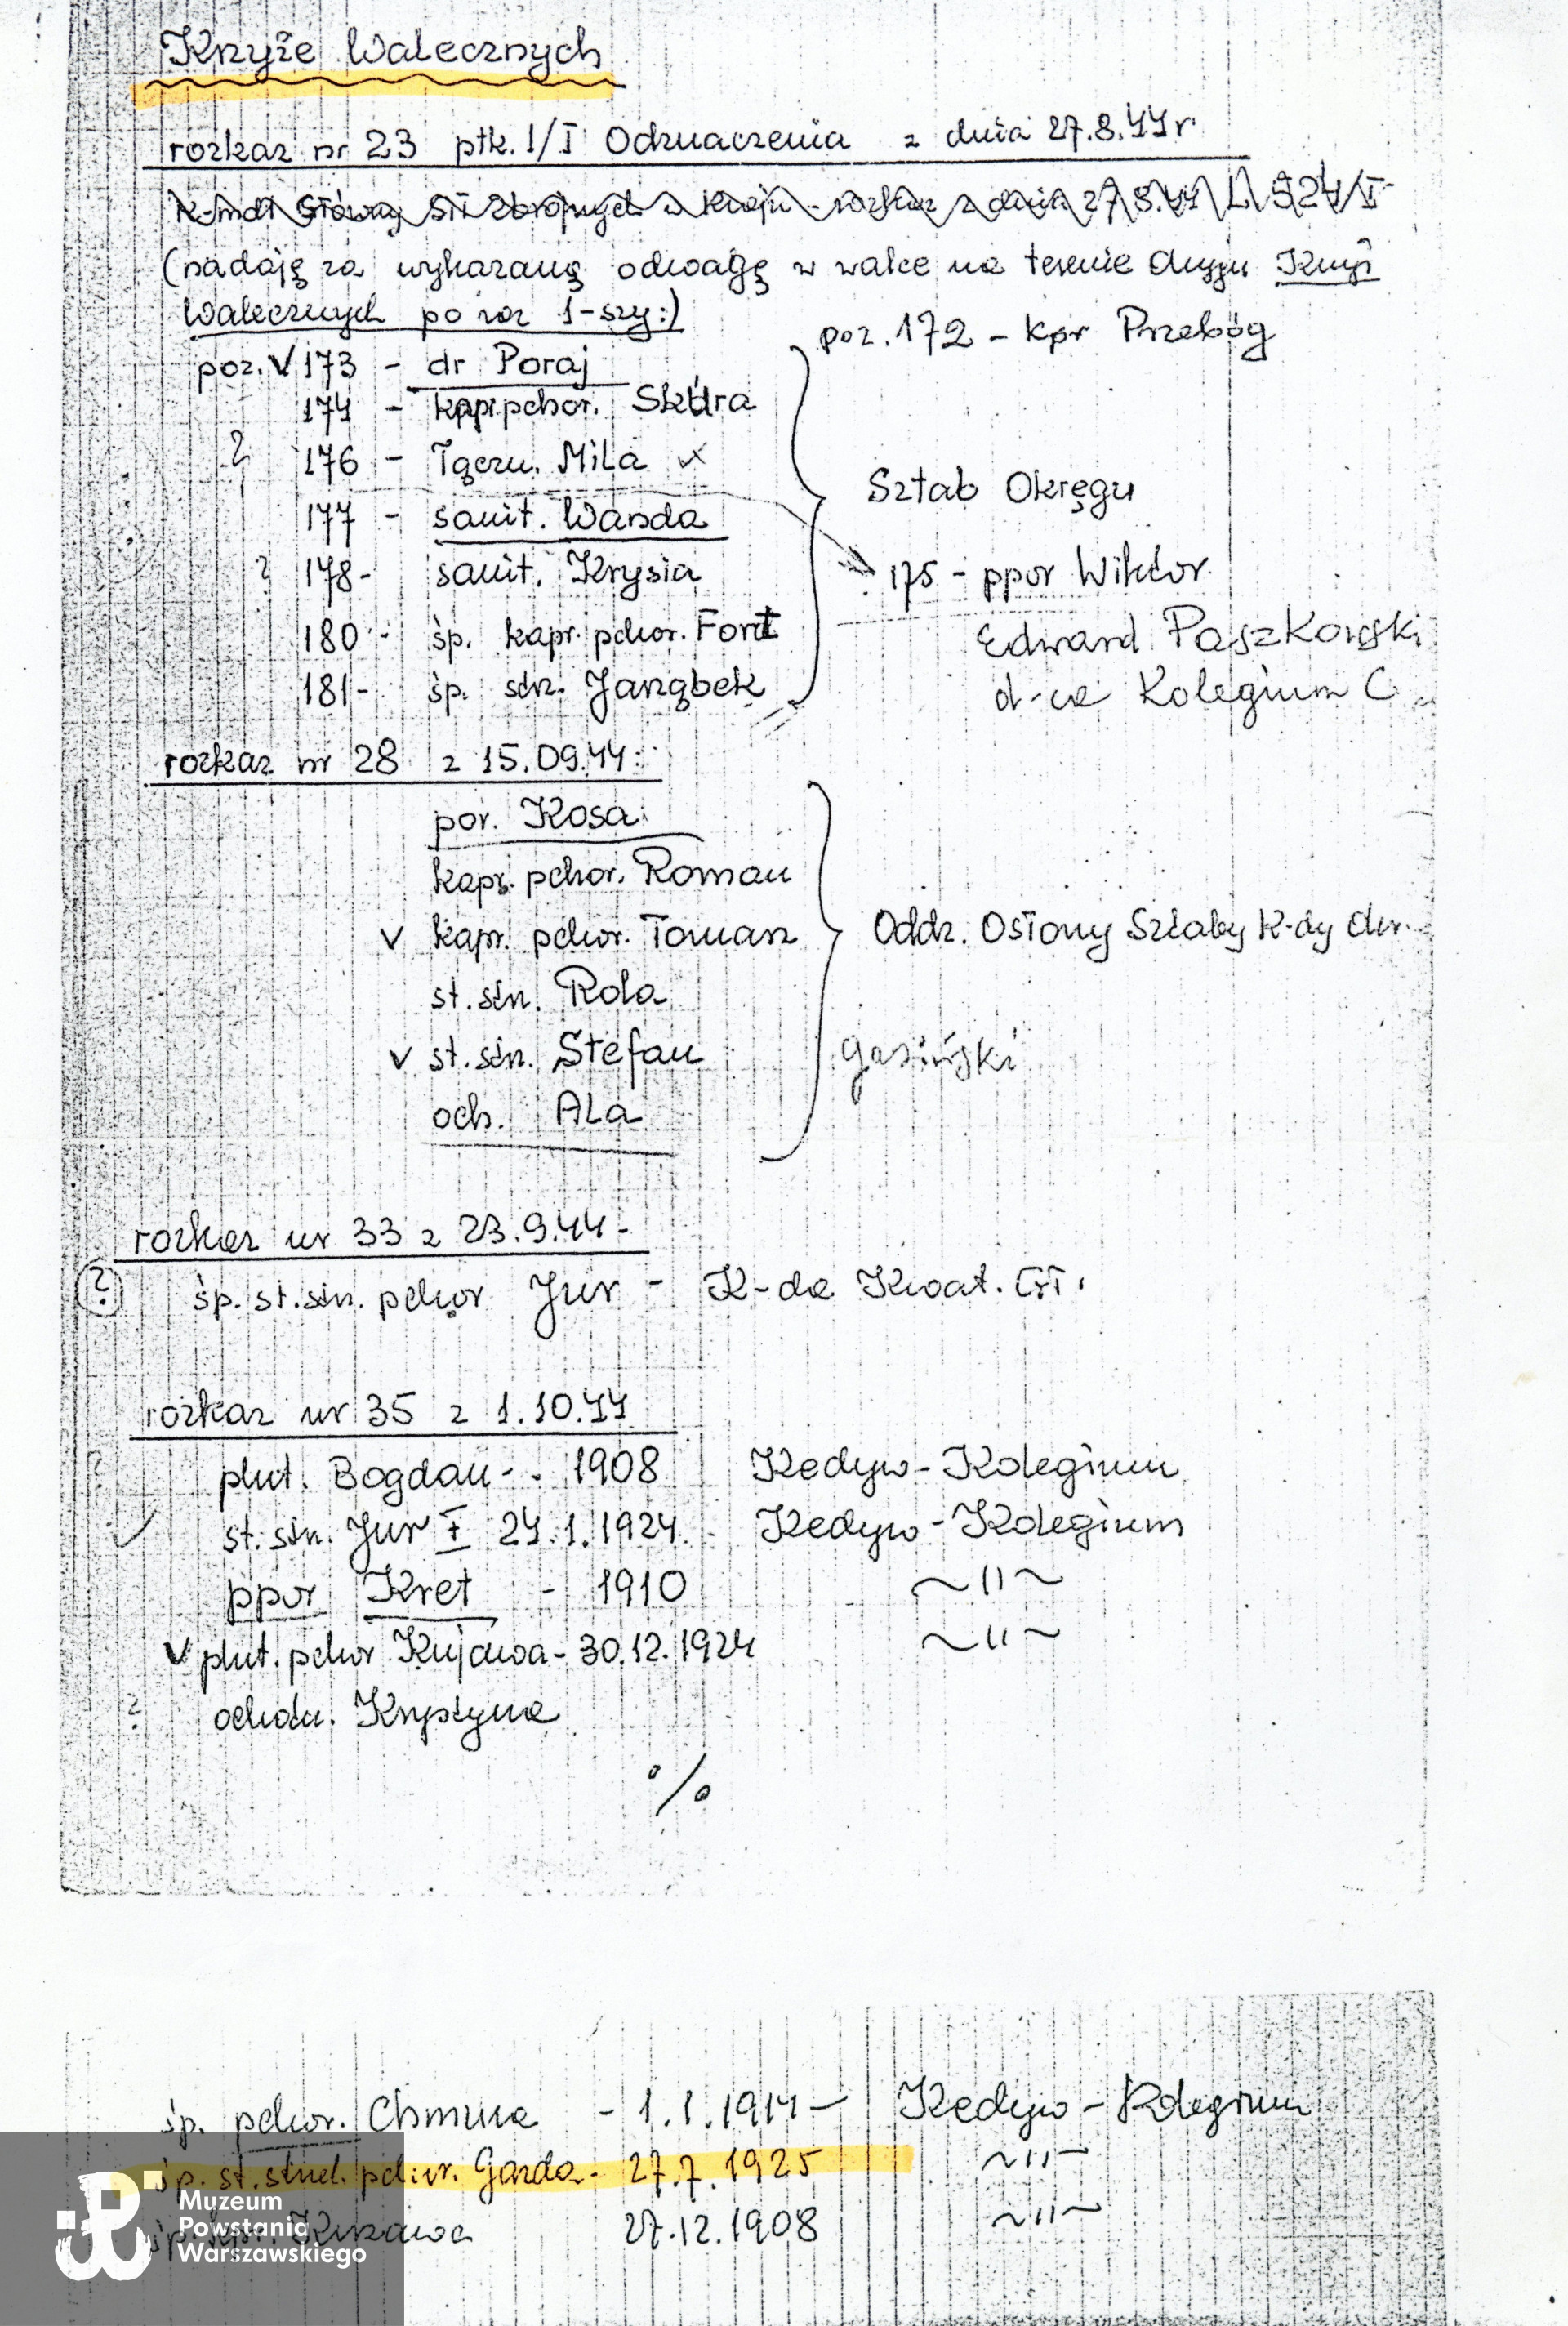 Krzyże Walecznych
rozkaz nr 23 ptk. I/I Odznaczenia z dnia 27.8.44 r.
K-mdt Główny Sił Zbrojnych w Kraju - rozkaz z dnia 27.8.44 L. 524/I
(nadaję za wykazaną odwagę w walce na terenie Okręgu Krzyż
Walecznych po raz 1-szy:)
poz. 172 - kpr Przebóg
poz. V 173 - dr Poraj
174 - kapr. pchor. Skóra
? 176 - łączn. Mila x
177 - sanit. Wanda
? 178 - sanit. Krysia
180 - śp. kapr. pchor. Fort
181 - śp. strz. Janząbek
Sztab Okręgu
175 - ppor Wiktor
Edward Paszkowski
d-ca Kolegium C
rozkaz nr 28 z 15.09.44:
por. Kosa
kapr. pchor. Roman
V kapr. pchor. Tomasz
st. strz. Rola
V st. strz. Stefan
och. Ala
Oddz. Osłony Sztabu K-dy Okr.
Gasiński
rozkaz nr 33 z 23.9.44 -
? śp. st. strz. pchor Jur - K-da Kwat. Gł.
rozkaz nr 35 z 1.10.44
plut. Bogdan - 1908 Kedyw - Kolegium
st. strz. Jur I 24.1.1924 Kedyw - Kolegium
ppor Kret - 1910 ~ " ~
V plut. pchor Kujawa - 30.12.1924 ~ " ~
? ochotn. Krystyna
%
śp. pchor. Chmura - 1.1.1914 - Kedyw - Kolegium
śp. st. strzel. pchor. Garda - 27.7.1925 ~ " ~
27.12.1908 ~ " ~
Muzeum
Powstania
Warszawskiego